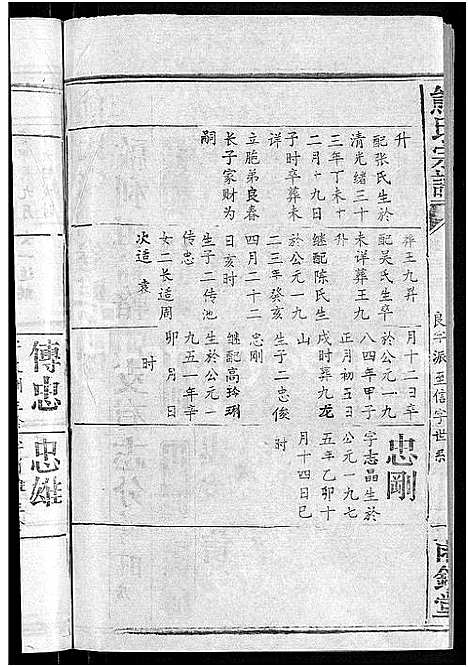 熊氏宗譜
良字派至信字世系
升
配张氏生於
清光绪三十
三年丁未十
二月十九日
子时卒葬未
详
立胞弟良春
长子家财为
嗣
葬王九昇
配吴氏生卒
未详葬王九
升
继配陈氏生
於公元一九
二三年癸亥
四月二十二
日亥时
生子二传池
传忠
女二长适周
次适袁
月十二日辛
於公元一九
八四年甲子
正月初五日
戌时葬九龙
山
生子二忠俊
忠刚
继配高玲琍
生於公元一
九五一年辛
卯月日
时
忠剛
字志晶生於
公元一九七
五年乙卯十
月十四日巳
时
傳忠
忠雄